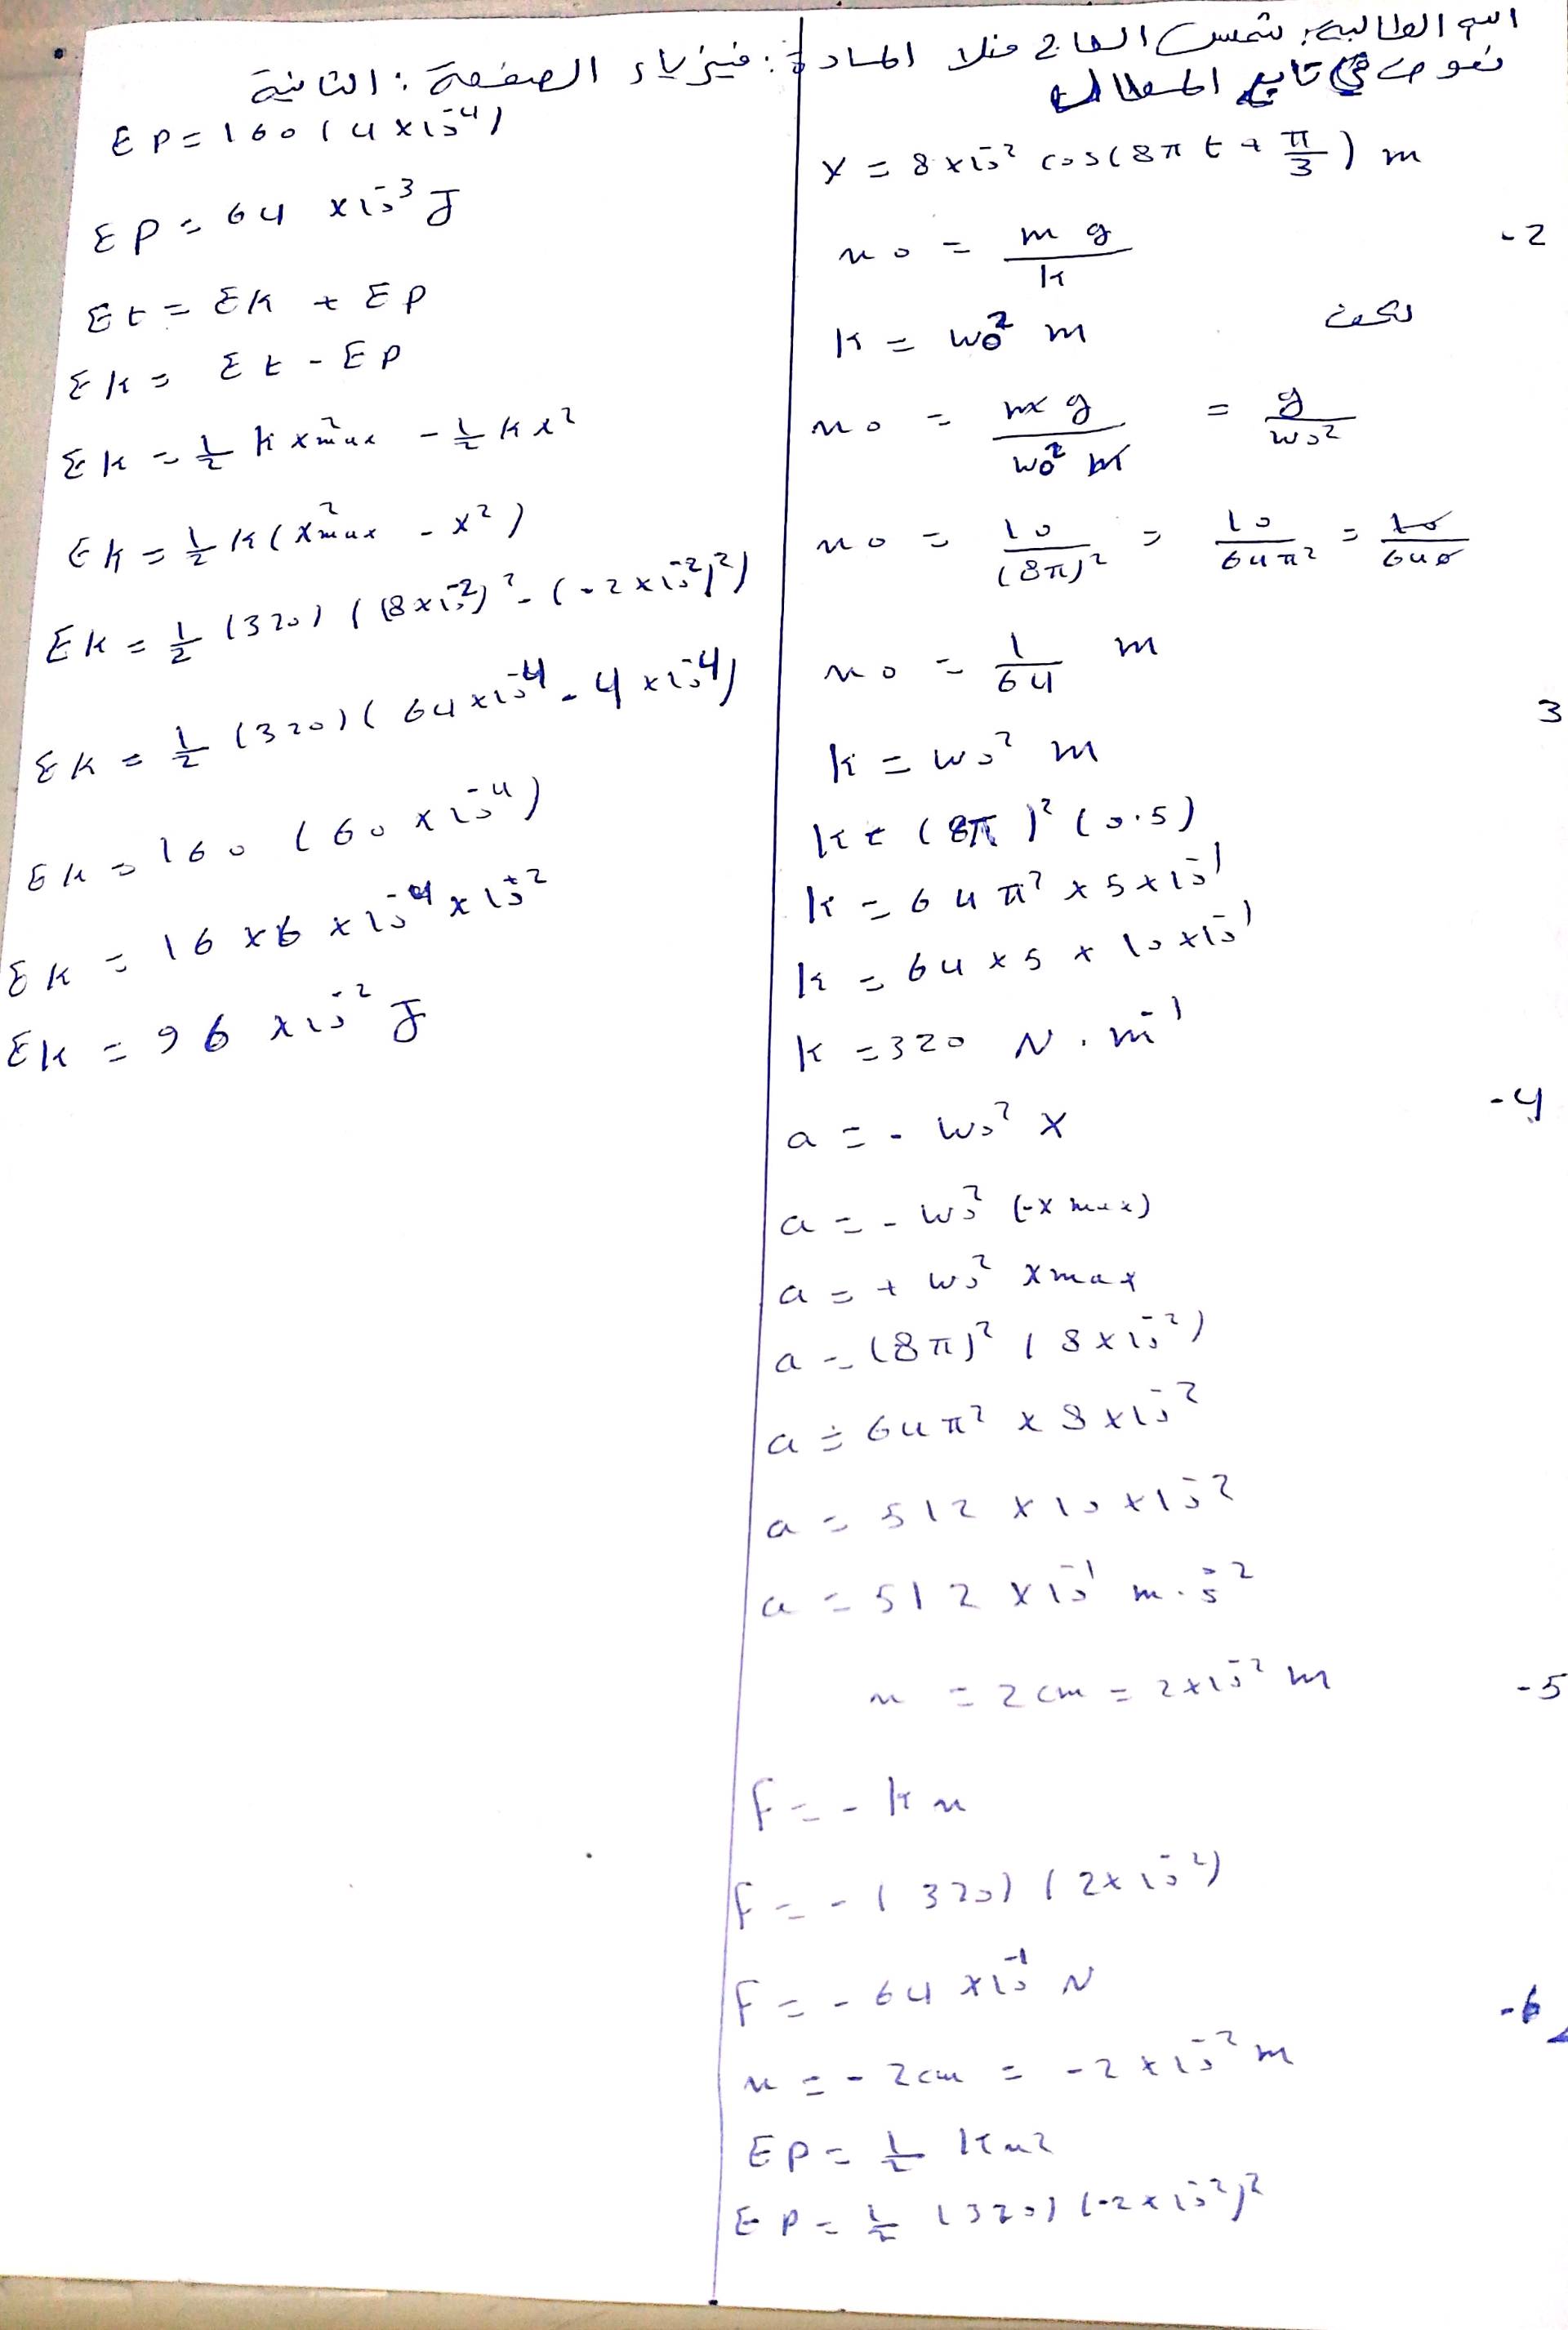 اسم الطالبة: شمس الحاج منلا المادة: فيزياء الصفحة: الثانية
نعوض في تابع المطال
X = 8 × 10⁻² cos(8π t + π/3) m
2- x₀ = mg/k
k = ω₀² m لكن
x₀ = mg/ω₀² m = g/ω₀²
x₀ = 10/(8π)² = 10/64π² = 10/640
x₀ = 1/64 m
3 k = ω₀² m
k = (8π)² (0.5)
k = 64 π² × 5 × 10⁻¹
k = 64 × 5 × 10 × 10⁻¹
k = 320 N . m⁻¹
4- a = - ω₀² X
a = - ω₀² (-X max)
a = + ω₀² X max
a = (8π)² (8 × 10⁻²)
a = 64π² × 8 × 10⁻²
a = 512 × 10 × 10⁻²
a = 512 × 10⁻¹ m . s⁻²
5- x = 2 cm = 2 × 10⁻² m
F = - k x
F = - (320) (2 × 10⁻²)
F = - 64 × 10⁻¹ N
6-
x = - 2 cm = - 2 × 10⁻² m
EP = 1/2 k x²
EP = 1/2 (320) (-2 × 10⁻²)²
EP = 160 (4 × 10⁻⁴)
EP = 64 × 10⁻³ J
Et = Ek + EP
Ek = Et - EP
Ek = 1/2 k x²max - 1/2 k x²
Ek = 1/2 k (X²max - X²)
Ek = 1/2 (320) ((8 × 10⁻²)² - (-2 × 10⁻²)²)
Ek = 1/2 (320) (64 × 10⁻⁴ - 4 × 10⁻⁴)
Ek = 160 (60 × 10⁻⁴)
Ek = 16 × 6 × 10⁻⁴ × 10⁺²
Ek = 96 × 10⁻² J